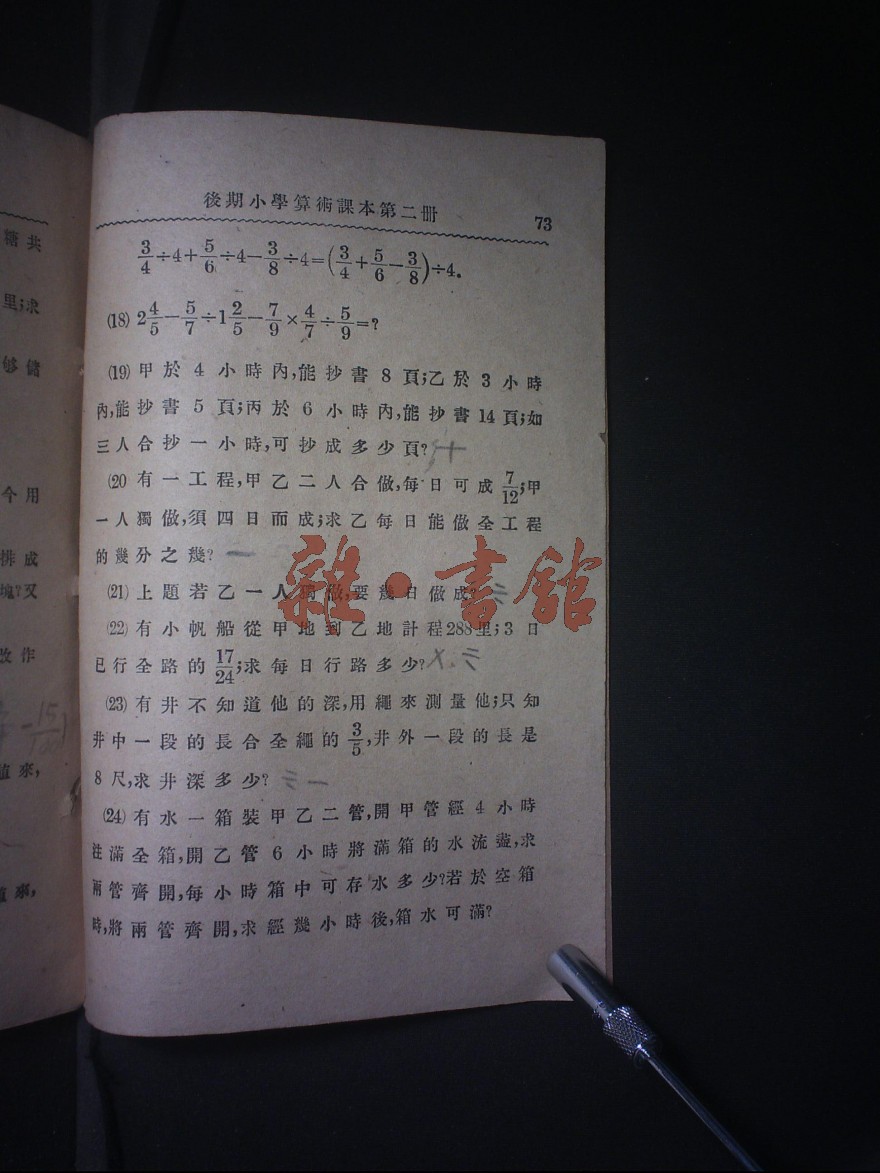 後期小學算術課本第二冊 73
3/4÷4+5/6÷4-3/8÷4=(3/4+5/6-3/8)÷4.
(18) 2 4/5-5/7÷1 2/5-7/9×4/7÷5/9=?
(19) 甲於4小時內,能抄書8頁;乙於3小時
內,能抄書5頁;丙於6小時內,能抄書14頁;如
三人合抄一小時,可抄成多少頁?
(20 有一工程,甲乙二人合做,每日可成7/12;甲
一人獨做,須四日而成;求乙每日能做全工程
的幾分之幾?
(21) 上題若乙一人獨做,要幾日做成?
(22) 有小帆船從甲地到乙地計程288里;3日
已行全路的17/24;求每日行路多少?
(23) 有井不知道他的深,用繩來測量他;只知
井中一段的長合全繩的3/5,井外一段的長是
8尺,求井深多少?
(24) 有水一箱裝甲乙二管,開甲管經4小時
注滿全箱,開乙管6小時將滿箱的水流盡,求
兩管齊開,每小時箱中可存水多少?若於空箱
時,將兩管齊開,求經幾小時後,箱水可滿?
雜·書館
糖共
里;求
够儲
今用
排成
塊?又
改作
-15/100
來,
來,